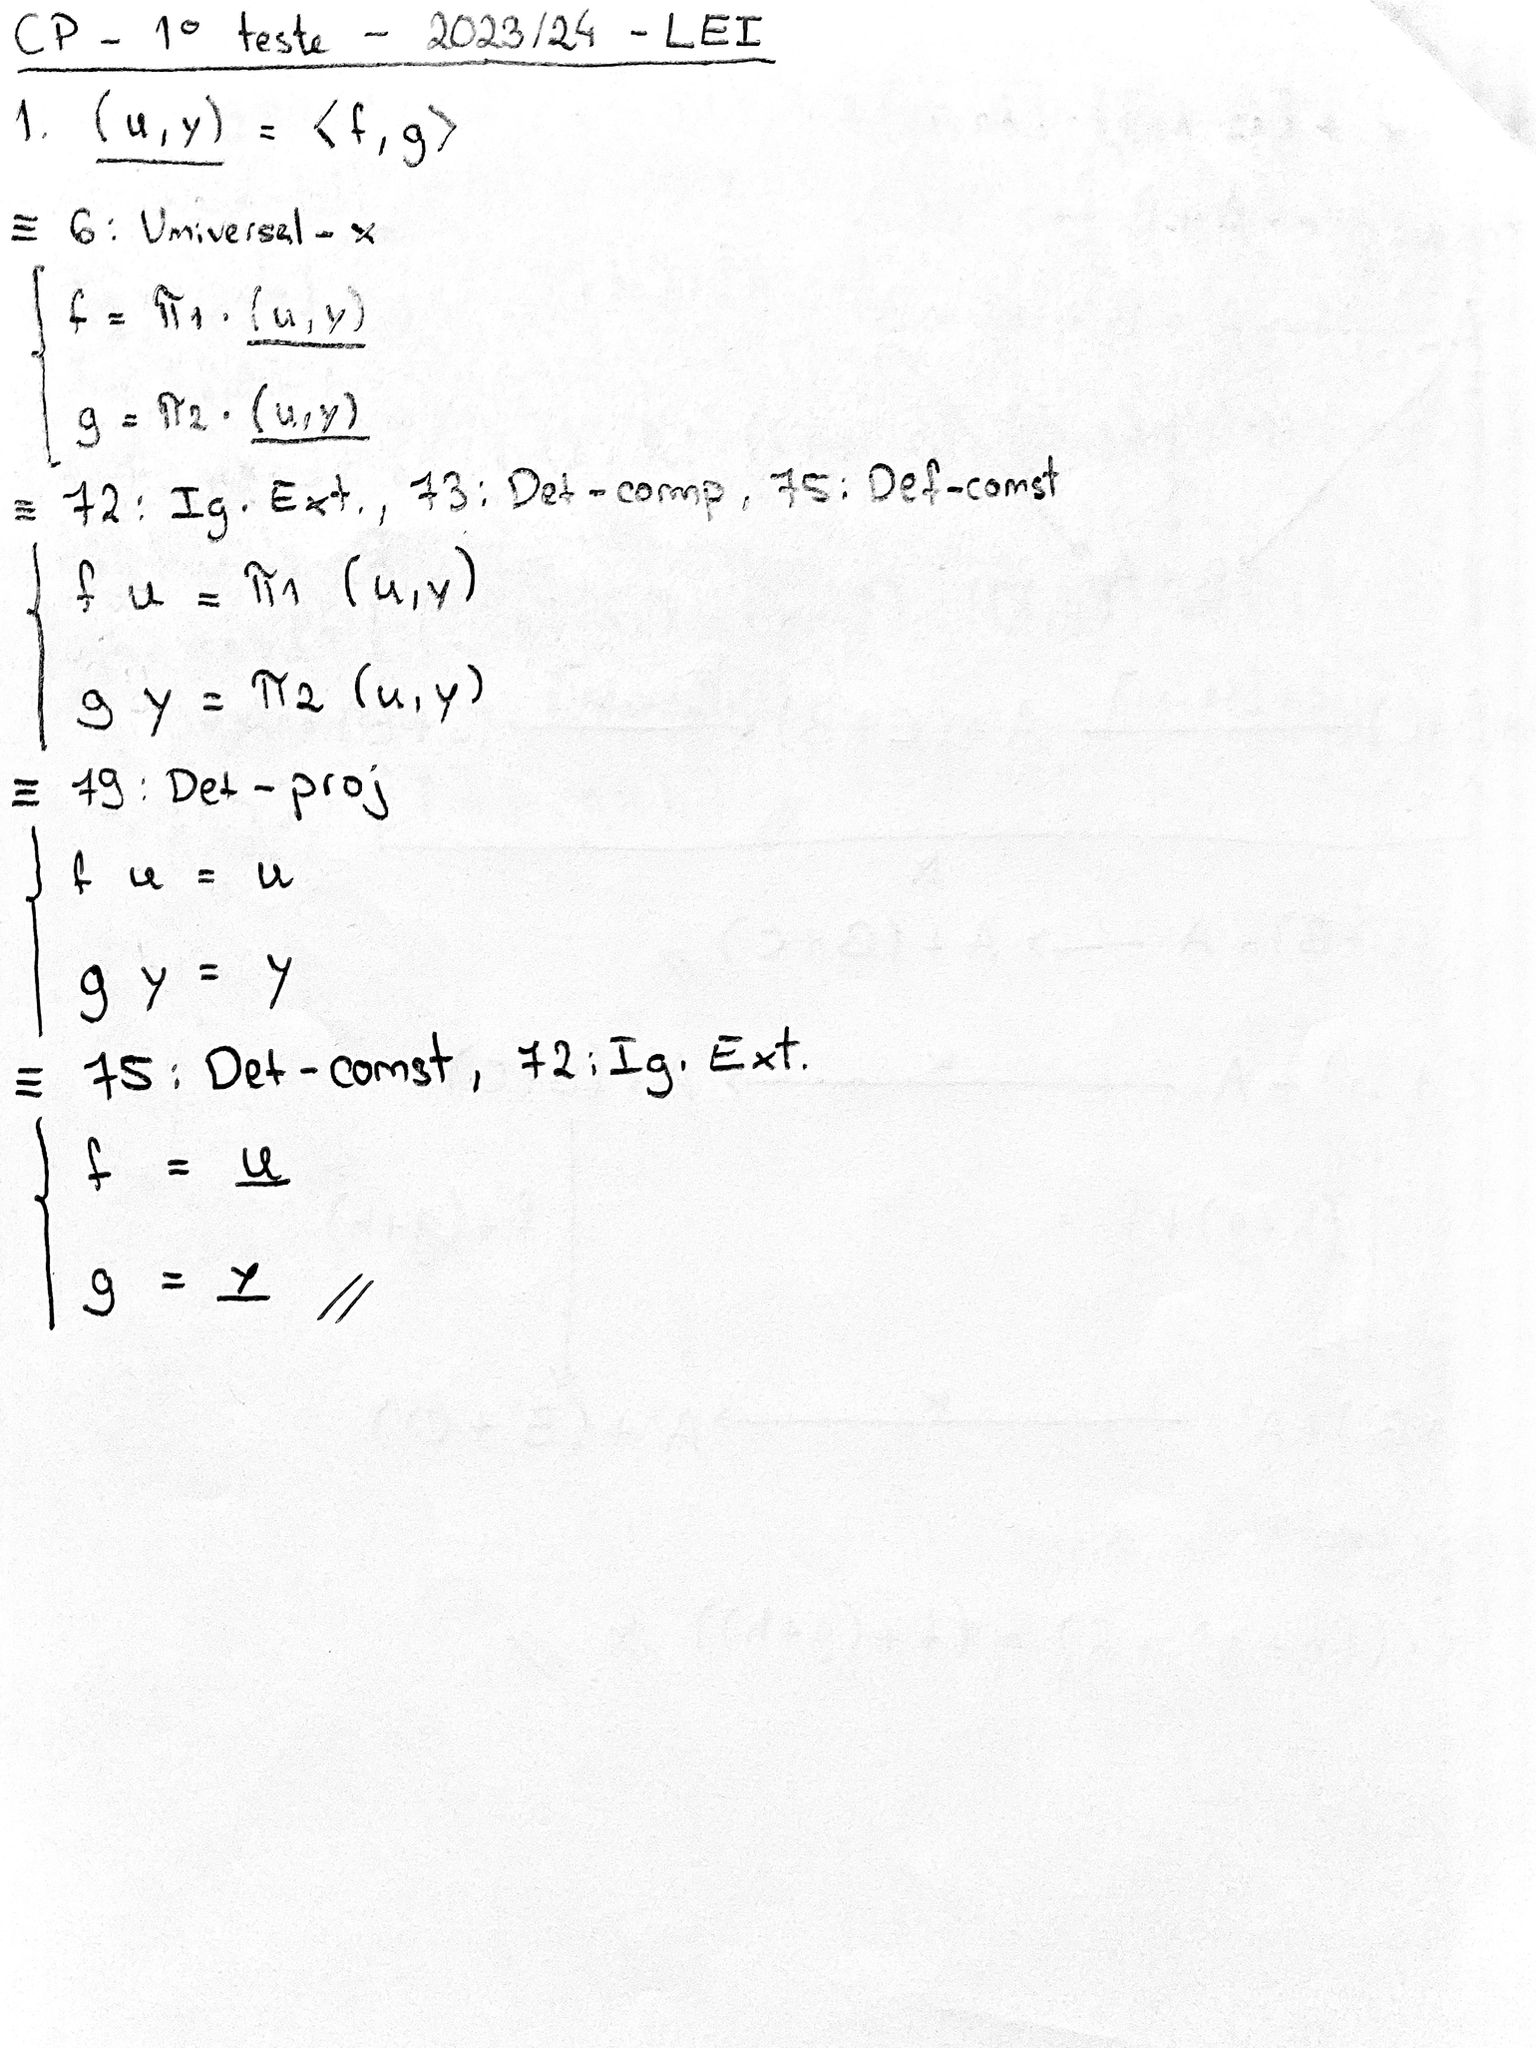 CP - 1º teste - 2023/24 - LEI
1. (u,y) = <f,g>
≡ 6: Universal-x
f = π1 . (u,y)
g = π2 . (u,y)
≡ 72: Ig. Ext., 73: Def-comp, 75: Def-const
f u = π1 (u,y)
g y = π2 (u,y)
≡ 79: Def-proj
f u = u
g y = y
≡ 75: Def-const, 72: Ig. Ext.
f = u
g = y //